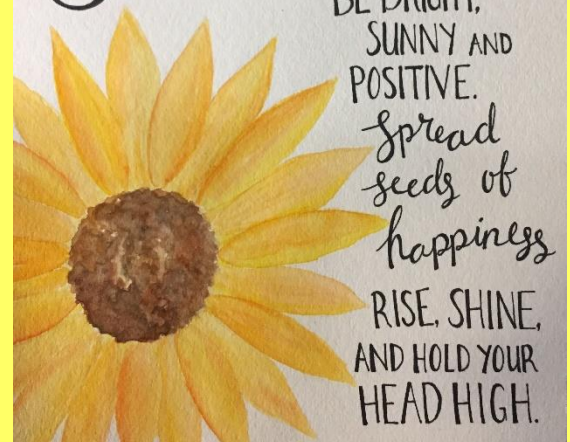 BE BRIGHT,
SUNNY AND
POSITIVE.
Spread
seeds of
happiness
RISE, SHINE,
AND HOLD YOUR
HEAD HIGH.